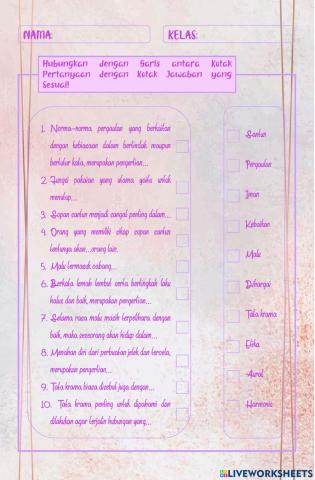 NAMA:
KELAS:
Hubungkan dengan Garis antara Kotak
Pertanyaan dengan Kotak Jawaban yang
Sesuai!
1. Norma-norma pergaulan yang berkaitan
dengan kebiasaan dalam bertindak maupun
bertutur kata, merupakan pengertian...
2. Fungsi pakaian yang utama yaitu untuk
menutup...
3. Sopan santun menjadi sangat penting dalam...
4. Orang yang memiliki sikap sopan santun
tentunya akan...orang lain.
5. Malu termasuk cabang...
6. Berkata lemah lembut serta bertingkah laku
halus dan baik, merupakan pengertian...
7. Selama rasa malu masih terpelihara dengan
baik, maka seseorang akan hidup dalam...
8. Menahan diri dari perbuatan jelek dan tercela,
merupakan pengertian...
9. Tata krama biasa disebut juga dengan...
10. Tata krama penting untuk dipahami dan
dilakukan agar terjalin hubungan yang...
Santun
Pergaulan
Iman
Kebaikan
Malu
Dihargai
Tata krama
Etika
Aurat
Harmonis
LIVEWORKSHEETS